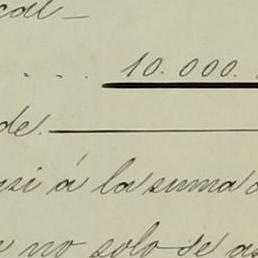 cal_
.... 10.000.
de
asi á la suma
no solo de as